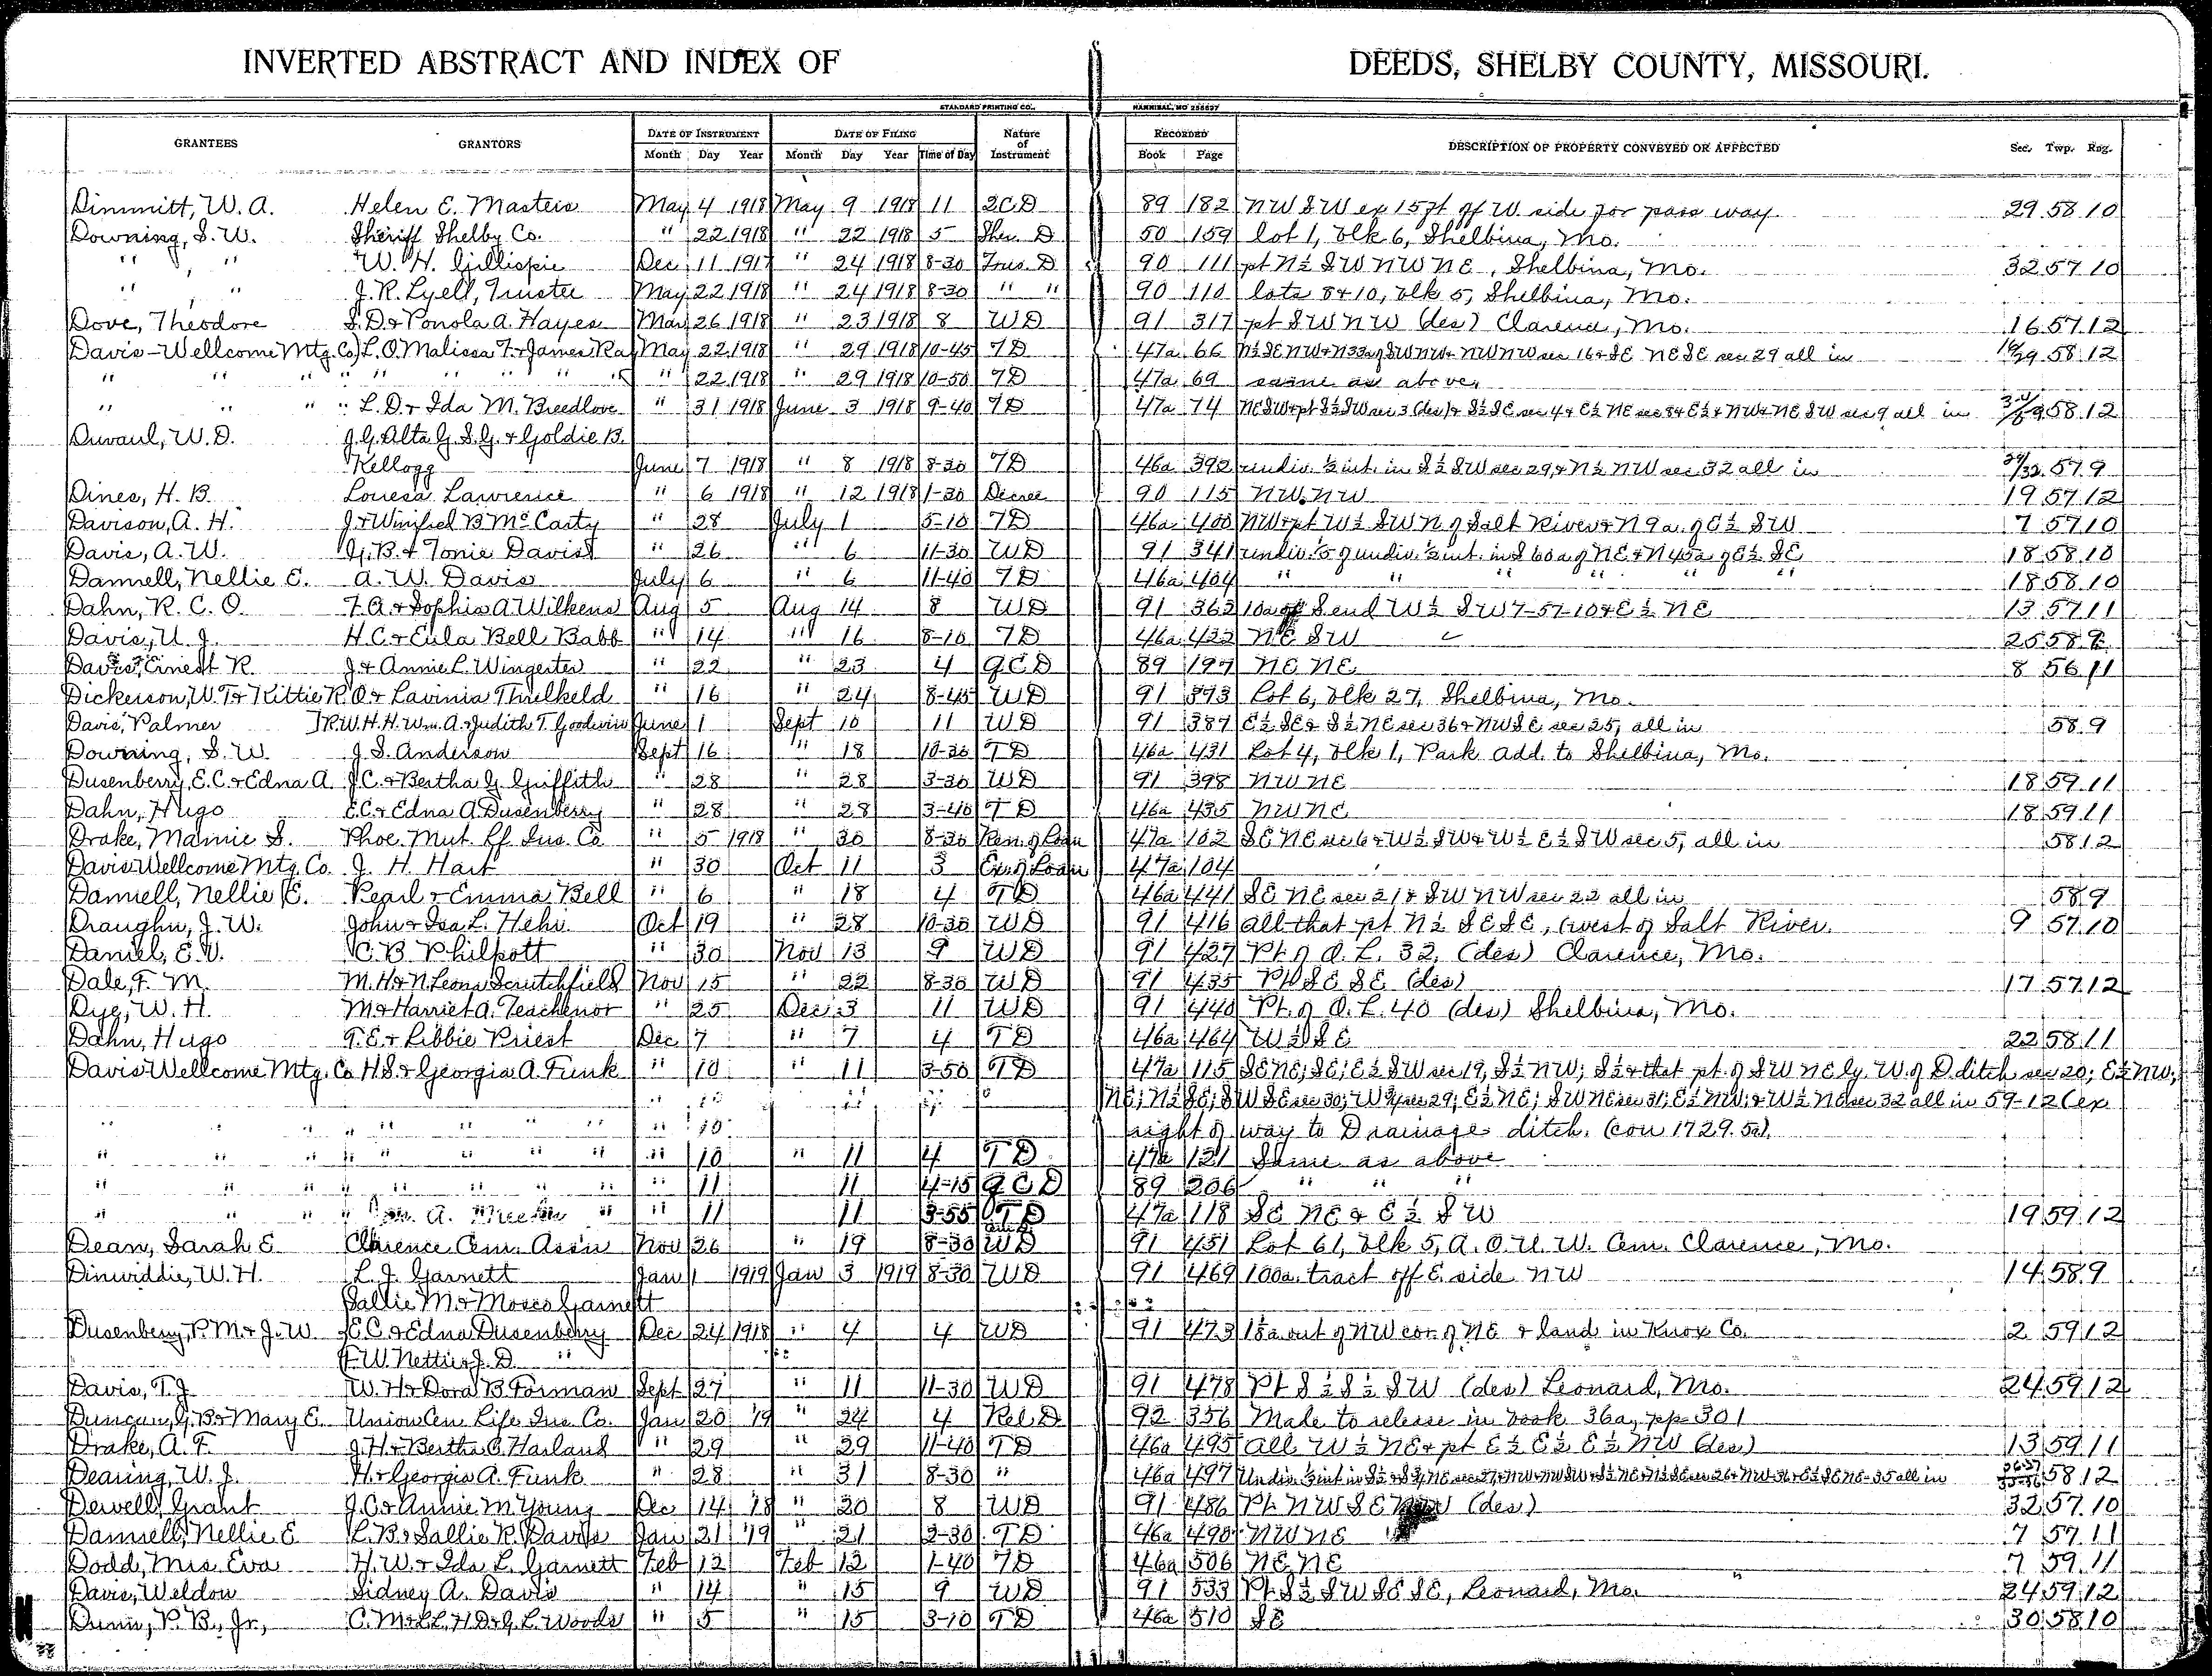 INVERTED ABSTRACT AND INDEX OF DEEDS, SHELBY COUNTY, MISSOURI.
STANDARD PRINTING CO., HANNIBAL, MO
GRANTEES GRANTORS DATE OF INSTRUMENT DATE OF FILING Nature of Instrument RECORDED DESCRIPTION OF PROPERTY CONVEYED OR AFFECTED Sec. Twp. Rng.
Month Day Year Month Day Year Time of Day Book Page
Dimmitt, W. A. Helen E. Masters May 4 1918 May 9 1918 11 QCD 89 182 NW SW ex 15 ft off W. side for pass way 29 58 10
Downing, S. W. Sheriff Shelby Co. " 22 1918 " 22 1918 5 Sher. D 50 159 Lot 1, Blk 6, Shelbina, Mo.
" " W. H. Gillispie Dec 11 1917 " 24 1918 8-30 Trus. D 90 111 pt N½ SW NW NE, Shelbina, Mo. 32 57 10
" " J. R. Lyell, Trustee May 22 1918 " 24 1918 8-30 " " 90 110 lots 8+10, blk 5, Shelbina, Mo.
Dove, Theodore S. D. + Ponola A. Hayes Mar 26 1918 " 23 1918 8 WD 91 317 pt SW NW (des) Clarence, Mo. 16 57 12
Davis-Wellcome Mtg. Co) L. O. Malissa F. + James Ray May 22 1918 " 29 1918 10-45 TD 47a 66 N½ SE NW + N33a of SW NW + NW NW sec 16 + SE NE SE sec 29 all in 16/29 58 12
" " " " " " " " " " 22 1918 " 29 1918 10-50 TD 47a 69 same as above,
" " " " L. D. + Ida M. Breedlove " 31 1918 June 3 1918 9-40 TD 47a 74 NE SW + pt S½ SW sec 3 (des) + S½ SE sec 4 + E½ NE sec 8 + E½ + NW + NE SW sec 9 all in 58 12
Duvaul, W. D. J. G. Alta G. S. G. + Goldie B.
Kellogg June 7 1918 " 8 1918 8-30 TD 46a 392 undiv. ½ int. in S½ SW sec 29 + N½ NW sec 32 all in 29/32 57 9
Dines, H. B. Louesa Lawrence " 6 1918 " 12 1918 1-30 Decree 90 115 NW NW 19 57 12
Davison, A. H. J. + Winifred B McCarty " 28 July 1 5-10 TD 46a 400 NW + pt W½ SW N of Salt River + N 9a. of E½ SW 7 57 10
Davis, A. W. G. B. + Tonie Davis " 26 " 6 11-30 WD 91 341 undiv. 1/5 of undiv. ½ int. in S 60a of NE + N 45a of E½ SE 18 58 10
Dannell, Nellie E. A. W. Davis July 6 " 6 11-40 TD 46a 404 " " " " " " 18 58 10
Dahn, R. C. O. F. A. + Sophia A Wilkens Aug 5 Aug 14 8 WD 91 362 10a off S end W½ SW 7-57-10 + E½ NE 13 57 11
Davis, U. J. H. C. + Eula Bell Babb " 14 " 16 8-10 TD 46a 422 NE SW 25 58 9
Davis, Ernest R. J. + Annie L. Wingerter " 22 " 23 4 QCD 89 197 NE NE 8 56 11
Dickerson, W. T. + Kittie R. O. + Lavinia Thrilkeld " 16 " 24 8-45 WD 91 393 Lot 6, Blk 27, Shelbina, Mo.
Davis, Palmer R. W. H. H. Wm. A. + Judith T. Goodwin June 1 Sept 10 11 WD 91 387 E½ SE + S½ NE sec 36 + NW SE sec 25, all in 58 9
Downing, S. W. J. S. Anderson Sept 16 " 18 10-30 TD 46a 431 Lot 4, Blk 1, Park Add. to Shelbina, Mo.
Dusenberry, E. C. + Edna A. J. C. + Bertha G. Griffith " 28 " 28 3-30 WD 91 398 NW NE 18 59 11
Dahn, Hugo E. C. + Edna A. Dusenberry " 28 " 28 3-40 TD 46a 435 NW NE 18 59 11
Drake, Mamie S. Phoe. Mut. Lf. Ins. Co " 5 1918 " 30 8-30 Ren. of Loan 47a 102 SE NE sec 6 + W½ SW + W½ E½ SW sec 5, all in 58 12
Davis Wellcome Mtg. Co. J. H. Hart " 30 Oct 11 3 Ex. of Loan 47a 104
Daniell, Nellie E. Pearl + Emma Bell " 6 " 18 4 TD 46a 441 SE NE sec 21 + SW NW sec 22 all in 58 9
Draughn, J. W. John + Isa L. Hehi Oct 19 " 28 10-30 WD 91 416 all that pt N½ SE SE, (west of Salt River. 9 57 10
Daniel, E. W. C. B. Philpott " 30 Nov 13 9 WD 91 427 Pt of O. L. 32, (des) Clarence, Mo.
Dale, F. M. M. H. + N. Leona Scrutchfield Nov 15 " 22 8-30 WD 91 435 Pt SE SE (des) 17 57 12
Dye, W. H. M + Harriet A. Teachenor " 25 Dec 3 11 WD 91 440 Pt. of O. L. 40 (des) Shelbina, Mo.
Dahn, Hugo T. E. + Libbie Priest Dec 7 " 7 4 TD 46a 464 W½ SE 22 58 11
Davis Wellcome Mtg. Co H. S. + Georgia A. Funk " 10 " 11 3-50 TD 47a 115 SE NE; SE; E½ SW sec 19, S½ NW; S½ + that pt. of SW NE ly. W. of D. ditch sec 20; E½ NW;
NE; N½ SE; SW SE sec 30; W¾ sec 29; E½ NE; SW NE sec 31; E½ NW; + W½ NE sec 32 all in 59-12 (ex
" " " " " " " " " 10 right of way to Drainage ditch. (con 1729.5a).
" " " " " " " " " 10 " 11 4 TD 47a 121 Same as above
" " " " " " " " " 11 11 4-15 QCD 89 206 " " "
" " " " A. " " 11 11 3-55 TD 47a 118 SE NE + E½ SW 19 59 12
Dean, Sarah E Clarence Cem. Ass'n Nov 26 " 19 8-30 WD 91 451 Lot 61, Blk 5, A. O. U. W. Cem. Clarence, Mo.
Dinwiddie, W. H. L. J. Garnett Jan 1 1919 Jan 3 1919 8-30 WD 91 469 100a. tract off E. side NW 14 58 9
Sallie M. + Moses Garnett
Dusenberry, P. M. + J. W. E. C. + Edna Dusenberry Dec 24 1918 " 4 4 WD 91 473 out of NW cor. of NE + land in Knox Co. 2 59 12
F. W. Nettie + J. D. "
Davis, T. J. W. H. + Dora B. Forman Sept 27 " 11 11-30 WD 91 478 Pt S½ S½ SW (des) Leonard, Mo. 24 59 12
Duncan, G. B. + Mary E. Union Cen. Life Ins. Co. Jan 20 '19 " 24 4 Rel. D 92 356 Made to release in book 36a, pp 301
Drake, A. F. J. H. + Bertha C. Harland " 29 " 29 11-40 TD 46a 495 all W½ NE + pt E½ E½ E½ NW (des) 13 59 11
Dearing, W. J. H. + Georgia A. Funk " 28 " 31 8-30 " 46a 497 Undiv. ½ int in 58 12
Dewell, Grant J. C. + Annie M. Young Dec 14 '18 " 20 8 WD 91 486 Pt NW SE (des) 32 57 10
Daniell, Nellie E L. B. + Sallie R. Davis Jan 21 '19 " 21 2-30 TD 46a 490 NW NE 7 57 11
Dodd, Mrs. Eva H. W. + Ida L. Garnett Feb 12 Feb 12 1-40 TD 46a 506 NE NE 7 59 11
Davis, Weldon Sidney A. Davis " 14 " 15 9 WD 91 533 Pt S½ SW SE SE, Leonard, Mo. 24 59 12
Dunn, P. B., Jr., C. M. + L. L. H. D. + G. L. Woods " 5 " 15 3-10 TD 46a 510 SE 30 58 10